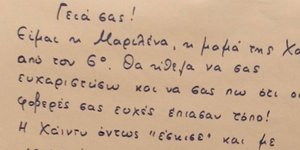 Γειά σας!
Είμαι η Μαριλένα, η μαμά της Χα
από τον 6ο. Θα ήθελα να σας
ευχαριστώσω και να σας πω ότι οι
φοβερές σας ευχές έπιασαν τόπο!
Η Χάιντυ όντως "έσκισε" και με